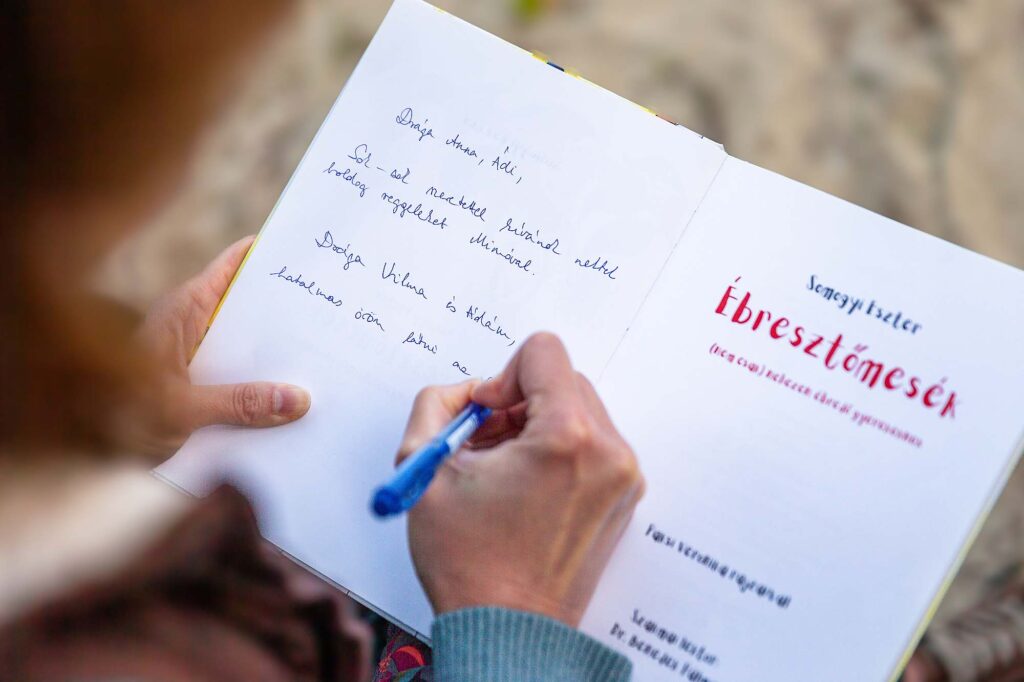 Drága Anna, Ádi,
Sok-sok szeretettel kívánok nektek
boldog reggeleket Mimóval.
Drága Vilma és Ádám,
hatalmas öröm látni az
Somogyi Eszter
Ébresztőmesék
(nem csak) nehezen ébredő gyerekeknek
rajzaival
Dr.